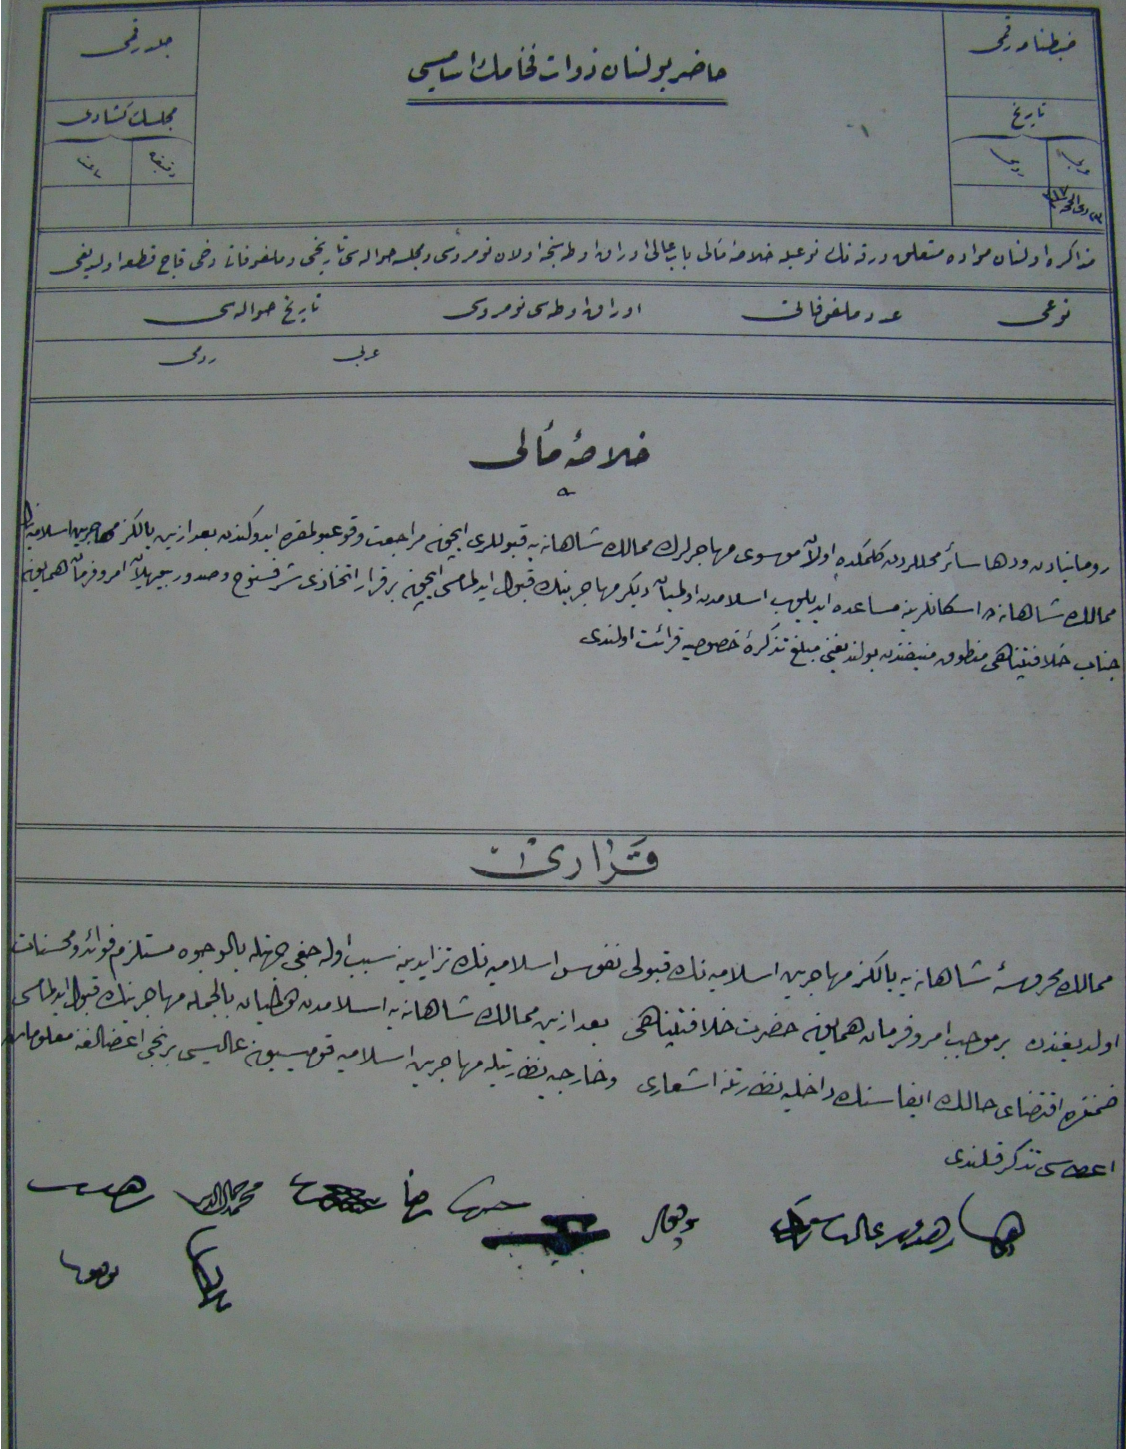 ضبطنامه رقمی
حاضر بولنان ذوات فخامك اسامیسی
جلد رقمی
تاریخ
مجلسك كشادی
عربی
رومی
دقیقه
ساعت
مذاكره اولنان مواده متعلق ورقه نك نوعیله خلاصۀ مآلی باب عالی اوراق اوطه سنجه اولان نومروسی و مجلسه حواله سی تاریخی و ملفوفاتی دخی قاچ قطعه اولدیغی
نوعی
عدد ملفوفاتی
اوراق اوطه سی نومروسی
تاریخ حواله سی
عربی
رومی
خلاصۀ مآلی
رومانیادن و دها سائر محللردن كلمكده اولان موسوی مهاجرلرك ممالك شاهانه یه قبوللری ایچون مراجعت وقوعبولمقده ایدوكندن بعد ازین یالكز مهاجرین اسلامیه نك
ممالك شاهانه ده اسكانلرینه مساعده ایدیلوب اسلامدن اولمیان دیكر مهاجرینك قبول ایدلمامسی ایچون بر قرار اتخاذی شرفسنوح و صدور بیوریلان امر و فرمان همایون
جناب خلافتپناهی منطوق منیفندن بولندیغنی مبلغ تذكرۀ خصوصیه قرائت اولندی
قراری
ممالك محروسۀ شاهانه یه یالكز مهاجرین اسلامیه نك قبولی نفوس اسلامیه نك تزایدینه سبب اوله جغی جهتله بالوجوه مستلزم فوائد و محسنات
اولدیغندن بر موجب امر و فرمان همایون حضرت خلافتپناهی بعد ازین ممالك شاهانه یه اسلامدن اولمیان بالجمله مهاجرینك قبول ایدلمامسی
ضمننده اقتضای حالك ایفاسنك داخلیه نظارتنه اشعاری و خارجیه نظارتیله مهاجرین اسلامیه قومیسیون عالیسی برنجی اعضالغنه معلومات
اعطاسی تذكر قلندی
رضا
محمد جلال الدین